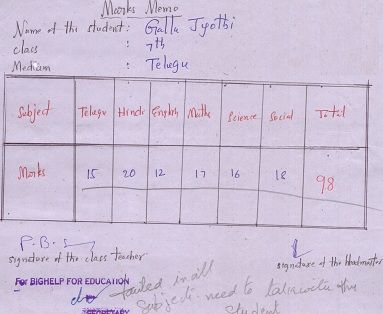 Marks Memo
Name of the student: Galla Jyothi
class : 7th
Medium : Telegu
Subject Telegu Hindi English Maths Science Social Total
Marks 15 20 12 17 16 18 98
P.B.S
signature of the class teacher
signature of the Headmaster
For BIGHELP FOR EDUCATION
failed in all
Subject. need to
student
SECRETARY